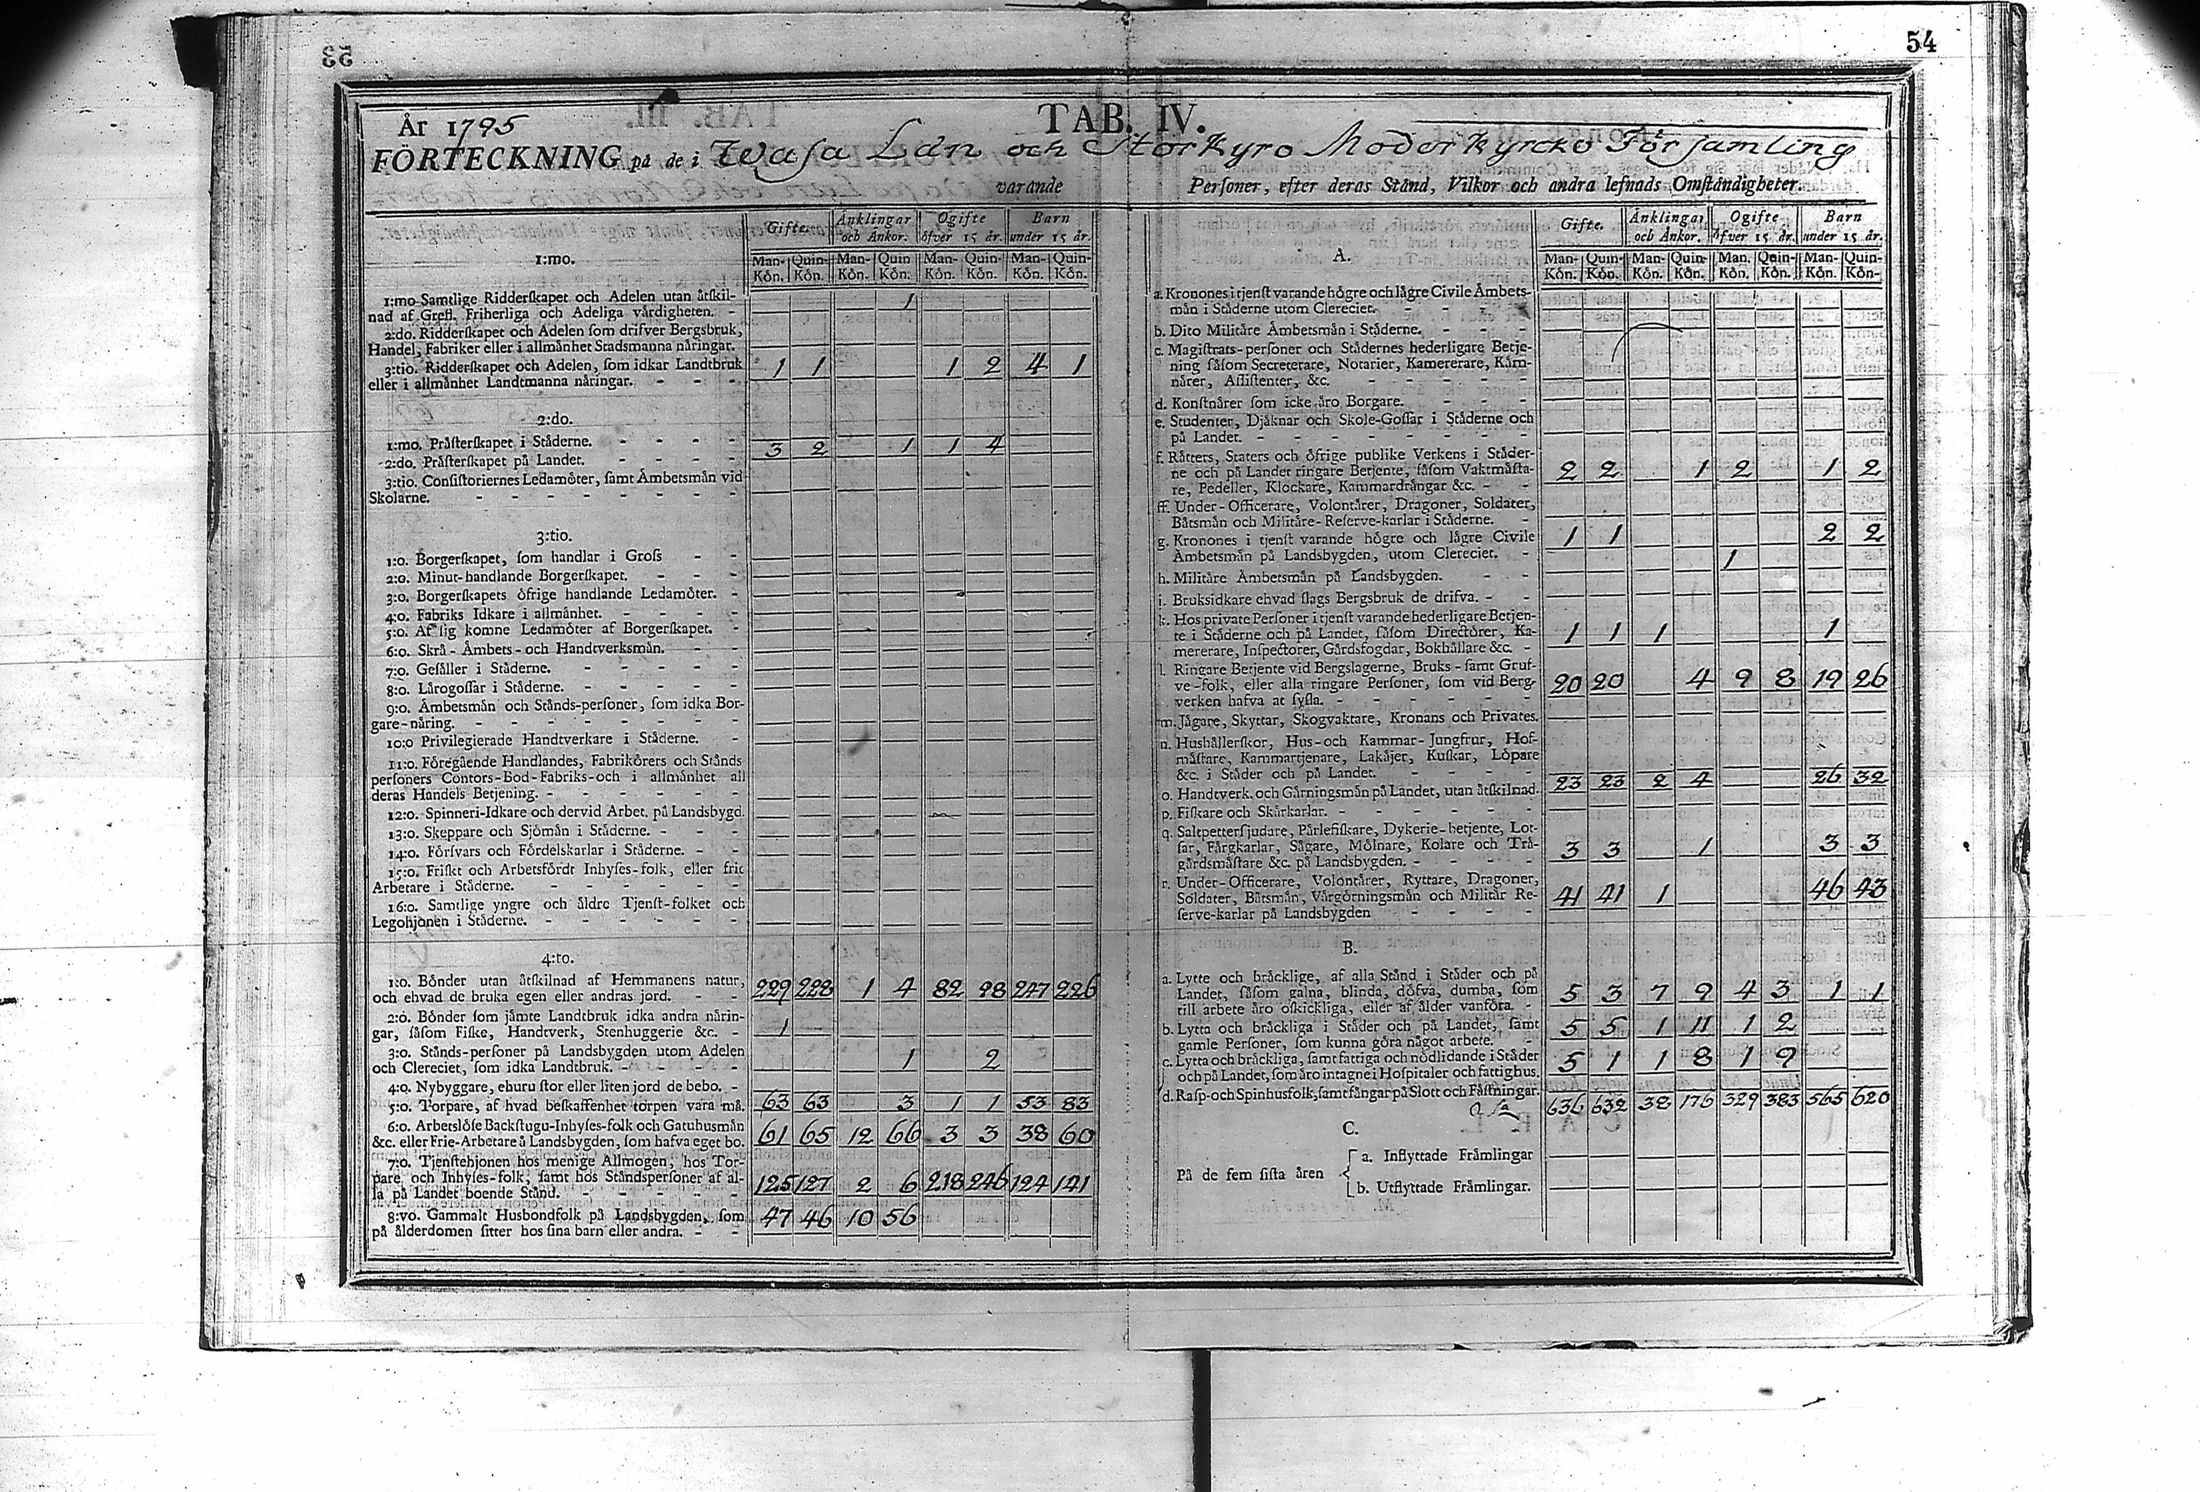 54
År 1795
TAB. IV.
FÖRTECKNING på de i Wasa Län och Storkyro Moderkyrcko Församling
varande Personer, efter deras Stånd, Vilkor och andra lefnads Omståndigheter.
Gifte. Ånklingar och Ånkor. Ogifte öfver 15 år. Barn under 15 år.
1:mo. Man-Kön. Quin-Kön. Man-Kön. Quin Kön. Man-Kön. Quin-Kön. Man-Kön. Quin-Kön.
1:mo Samtlige Ridderskapet och Adelen utan åtskil- 1
nad af Grefl. Friherliga och Adeliga vårdigheten. -
2:do. Ridderskapet och Adelen som drifver Bergsbruk,
Handel, Fabriker eller i allmånhet Stadsmanna nåringar.
3:tio. Ridderskapet och Adelen, som idkar Landtbruk 1 1 1 2 4 1
eller i allmånhet Landtmanna nåringar. - - - -
2:do.
1:mo. Pråsterskapet i Ståderne. - - - -
2:do. Pråsterskapet på Landet. - - - - 3 2 1 1 4
3:tio. Consistoriernes Ledamöter, samt Åmbetsmån vid
Skolarne. - - - - - - -
3:tio.
1:o. Borgerskapet, som handlar i Gross - -
2:o. Minut-handlande Borgerskapet. - - -
3:o. Borgerskapets öfrige handlande Ledamöter. -
4:o. Fabriks Idkare i allmånhet. - - - -
5:o. Af sig komne Ledamöter af Borgerskapet. -
6:o. Skrå - Åmbets - och Handtverksmån. - -
7:o. Gesåller i Ståderne. - - - - -
8:o. Lårogossar i Ståderne. - - - - -
9:o. Åmbetsmån och Stånds-personer, som idka Bor-
gare-nåring. - - - - - - -
10:o Privilegierade Handtverkare i Ståderne. -
11:o. Föregående Handlandes, Fabrikörers och Stånds
personers Contors-Bod-Fabriks-och i allmånhet all
deras Handels Betjening. - - - - - -
12:o. Spinneri-Idkare och dervid Arbet. på Landsbygd.
13:o. Skeppare och Sjömån i Ståderne. - - -
14:o. Försvars och Fördelskarlar i Ståderne. - -
15:o. Friskt och Arbetsfördt Inhyses-folk, eller frie
Arbetare i Ståderne. - - - - - -
16:o. Samtlige yngre och åldre Tjenst-folket och
Legohjonen i Ståderne. - - - - - -
4:to.
1:o. Bönder utan åtskilnad af Hemmanens natur, 229 228 1 4 82 98 247 226
och ehvad de bruka egen eller andras jord. - -
2:o. Bönder som jåmte Landtbruk idka andra nårin-
gar, såsom Fiske, Handtverk, Stenhuggerie &c. - 1
3:o. Stånds-personer på Landsbygden utom Adelen
och Clereciet, som idka Landtbruk. - - - - 1 2
4:o. Nybyggare, ehuru stor eller liten jord de bebo. -
5:o. Torpare, af hvad beskaffenhet torpen vara må. 63 63 3 1 1 53 83
6:o. Arbetslöse Backstugu-Inhyses-folk och Gatuhusmån
&c. eller Frie-Arbetare å Landsbygden, som hafva eget bo. 61 65 12 66 3 3 38 60
7:o. Tjenstehjonen hos menige Allmogen, hos Tor-
pare, och Inhyses-folk, samt hos Ståndspersoner af al-
la på Landet boende Stånd. - - - - - 125 127 2 6 218 246 124 141
8:vo. Gammalt Husbondfolk på Landsbygden, som 47 46 10 56
på ålderdomen sitter hos sina barn eller andra. - -
Gifte. Ånklingar och Ånkor. Ogifte öfver 15 år. Barn under 15 år.
A. Man-Kön. Quin-Kön. Man-Kön. Quin-Kön. Man. Kön. Quin-Kön. Man-Kön. Quin-Kön-
a. Kronones i tjenst varande högre och lågre Civile Åmbets-
mån i Ståderne utom Clereciet. - - - -
b. Dito Militåre Åmbetsmån i Ståderne. - - -
c. Magistrats-personer och Stådernes hederligare Betje-
ning såsom Secreterare, Notarier, Kamererare, Kåm-
nårer, Assistenter, &c. - - - - -
d. Konstnårer som icke åro Borgare. - - -
e. Studenter, Djåknar och Skole-Gossar i Ståderne och
på Landet. - - - - - - -
f. Råtters, Staters och öfrige publike Verkens i Ståder-
ne och på Landet ringare Betjente, såsom Vaktmåsta- 2 2 1 2 1 2
re, Pedeller, Klockare, Kammardrångar &c. - -
ff. Under-Officerare, Volontårer, Dragoner, Soldater,
Båtsmån och Militåre-Reserve-karlar i Ståderne. -
g. Kronones i tjenst varande högre och lågre Civile 1 1 2 2
Åmbetsmån på Landsbygden, utom Clereciet. - 1
h. Militåre Åmbetsmån på Landsbygden. - -
i. Bruksidkare ehvad slags Bergsbruk de drifva. - -
k. Hos private Personer i tjenst varande hederligare Betjen-
te i Ståderne och på Landet, såsom Directörer, Ka- 1 1 1 1
mererare, Inspectorer, Gårdsfogdar, Bokhållare &c. -
l. Ringare Betjente vid Bergslagerne, Bruks-samt Gruf-
ve-folk, eller alla ringare Personer, som vid Berg- 20 20 4 9 8 19 26
verken hafva at syssla. - - - - - -
m. Jågare, Skyttar, Skogvaktare, Kronans och Privates.
n. Hushållerskor, Hus-och Kammar-Jungfrur, Hof-
måstare, Kammartjenare, Lakåjer, Kuskar, Löpare
&c. i Ståder och på Landet. - - - -
o. Handtverk. och Gårningsmån på Landet, utan åtskilnad. 23 23 2 4 26 32
p. Fiskare och Skårkarlar. - - - - -
q. Saltpettersjudare, Pårlefiskare, Dykerie-betjente, Lot-
sar, Fårgkarlar, Sågare, Mölnare, Kolare och Trå- 3 3 1 3 3
gårdsmåstare &c. på Landsbygden. - - - -
r. Under-Officerare, Volontårer, Ryttare, Dragoner,
Soldater, Båtsmån, Vårgörningsmån och Militår Re- 41 41 1 46 43
serve-karlar på Landsbygden - - - -
B.
a. Lytte och bråcklige, af alla Stånd i Ståder och på
Landet, såsom galna, blinda, döfva, dumba, som 5 3 7 9 4 3 1 1
till arbete åro oskickliga, eller af ålder vanföra. -
b. Lytta och bråckliga i Ståder och på Landet, samt 5 5 1 11 1 2
gamle Personer, som kunna göra något arbete. -
c. Lytta och bråckliga, samt fattiga och nödlidande i Ståder 5 1 1 8 1 9
och på Landet, som åro intagne i Hospitaler och fattighus.
d. Rasp-och Spinhusfolk, samt fångar på Slott och Fåstningar.
636 632 38 176 329 383 565 620
C.
På de fem sista åren
a. Inflyttade Fråmlingar
b. Utflyttade Fråmlingar.